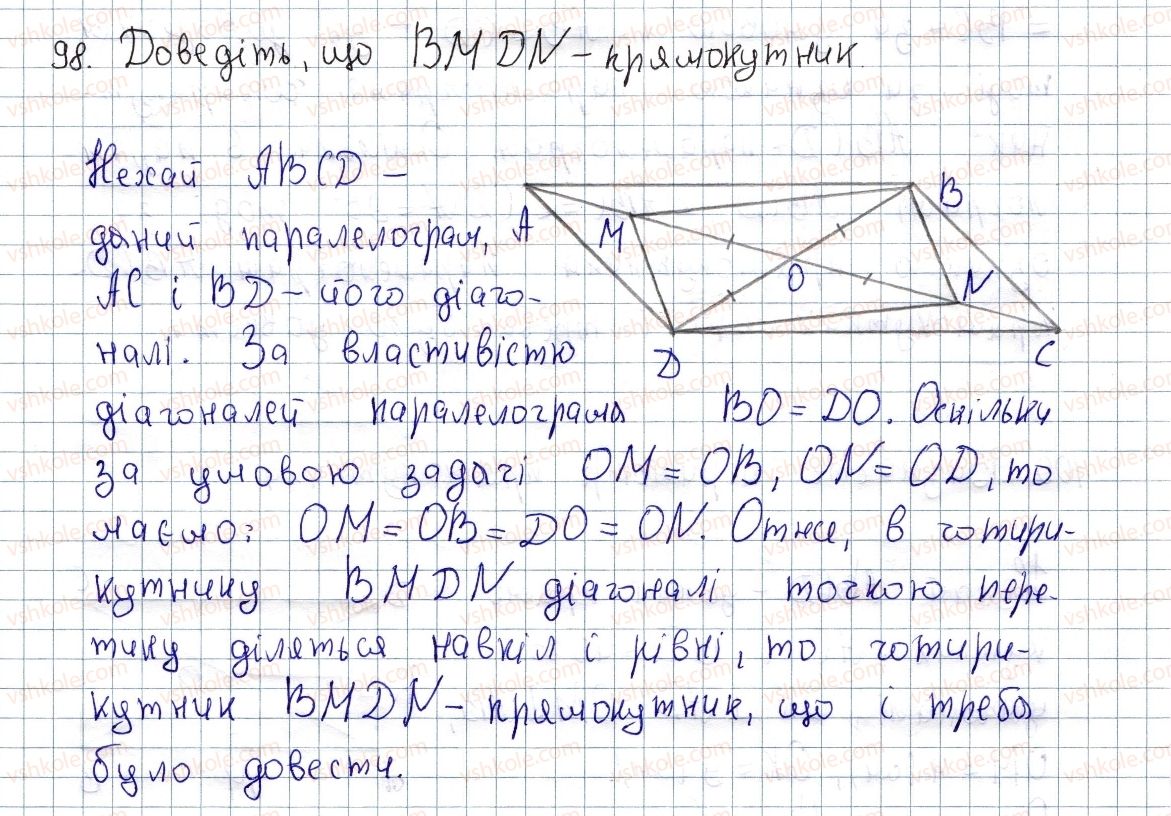 98. Доведіть, що BMDN – прямокутник.
Нехай ABCD –
даний паралелограм,
AC і BD – його діаго-
налі. За властивістю
діагоналей паралелограма BO = DO. Оскільки
за умовою задачі OM = OB, ON = OD, то
маємо: OM = OB = DO = ON. Отже, в чотири-
кутнику BMDN діагоналі точкою пере-
тину діляться навкіл і рівні, то чотири-
кутник BMDN – прямокутник, що і треба
було довести.
A
M
B
O
N
D
C
vshkole.com